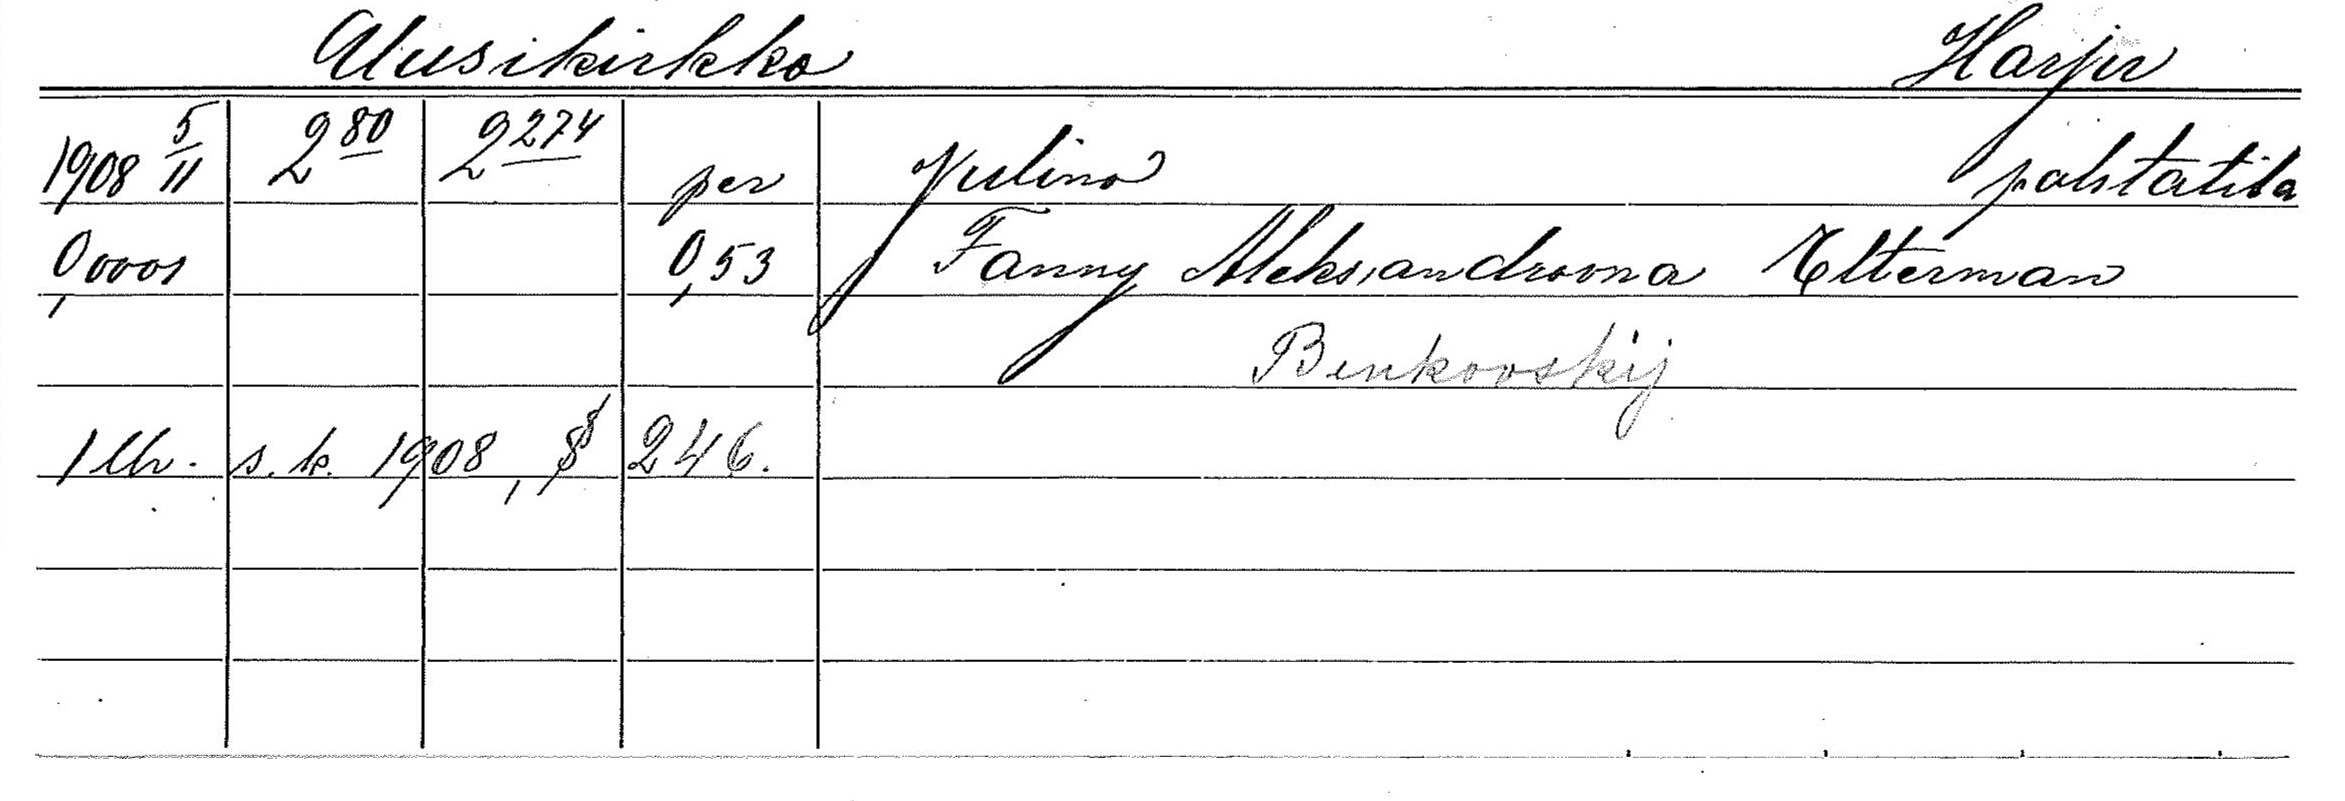 Uusikirkko Harju
1908 5/11 2 80 2 274 per Julino palstatila
0,0001 0,53 Fanny Aleksandrovna Elterman
Benkovskij
1 lh. s.k. 1908, § 246.